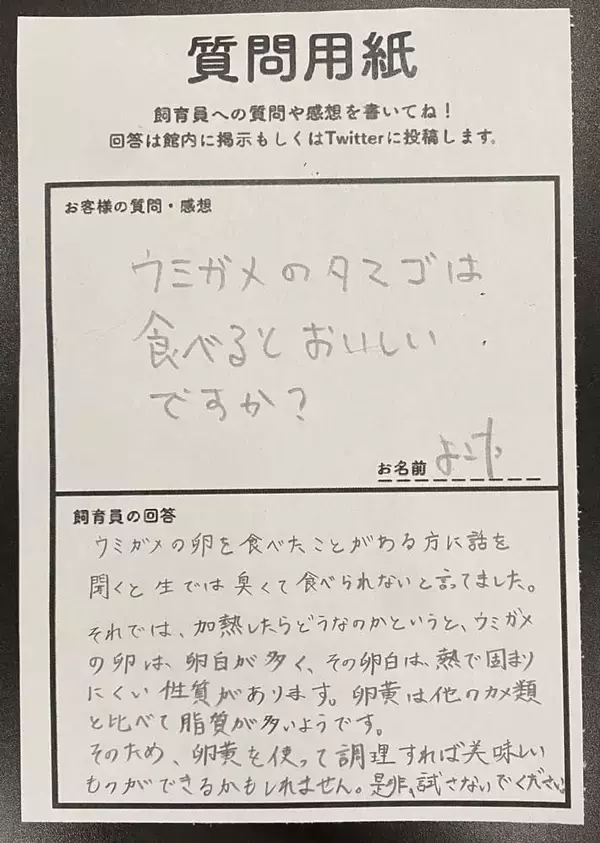 質問用紙
飼育員への質問や感想を書いてね！
回答は館内に掲示もしくはTwitterに投稿します。
お客様の質問・感想
ウミガメのタマゴは
食べるとおいしい
ですか？
お名前
飼育員の回答
ウミガメの卵を食べたことがある方に話を
聞くと生では臭くて食べられないと言ってました。
それでは、加熱したらどうなのかというと、ウミガメ
の卵は、卵白が多く、その卵白は、熱で固まり
にくい性質があります。卵黄は他のカメ類
と比べて脂質が多いようです。
そのため、卵黄を使って調理すれば美味しい
ものができるかもしれません。是非、試さないでください